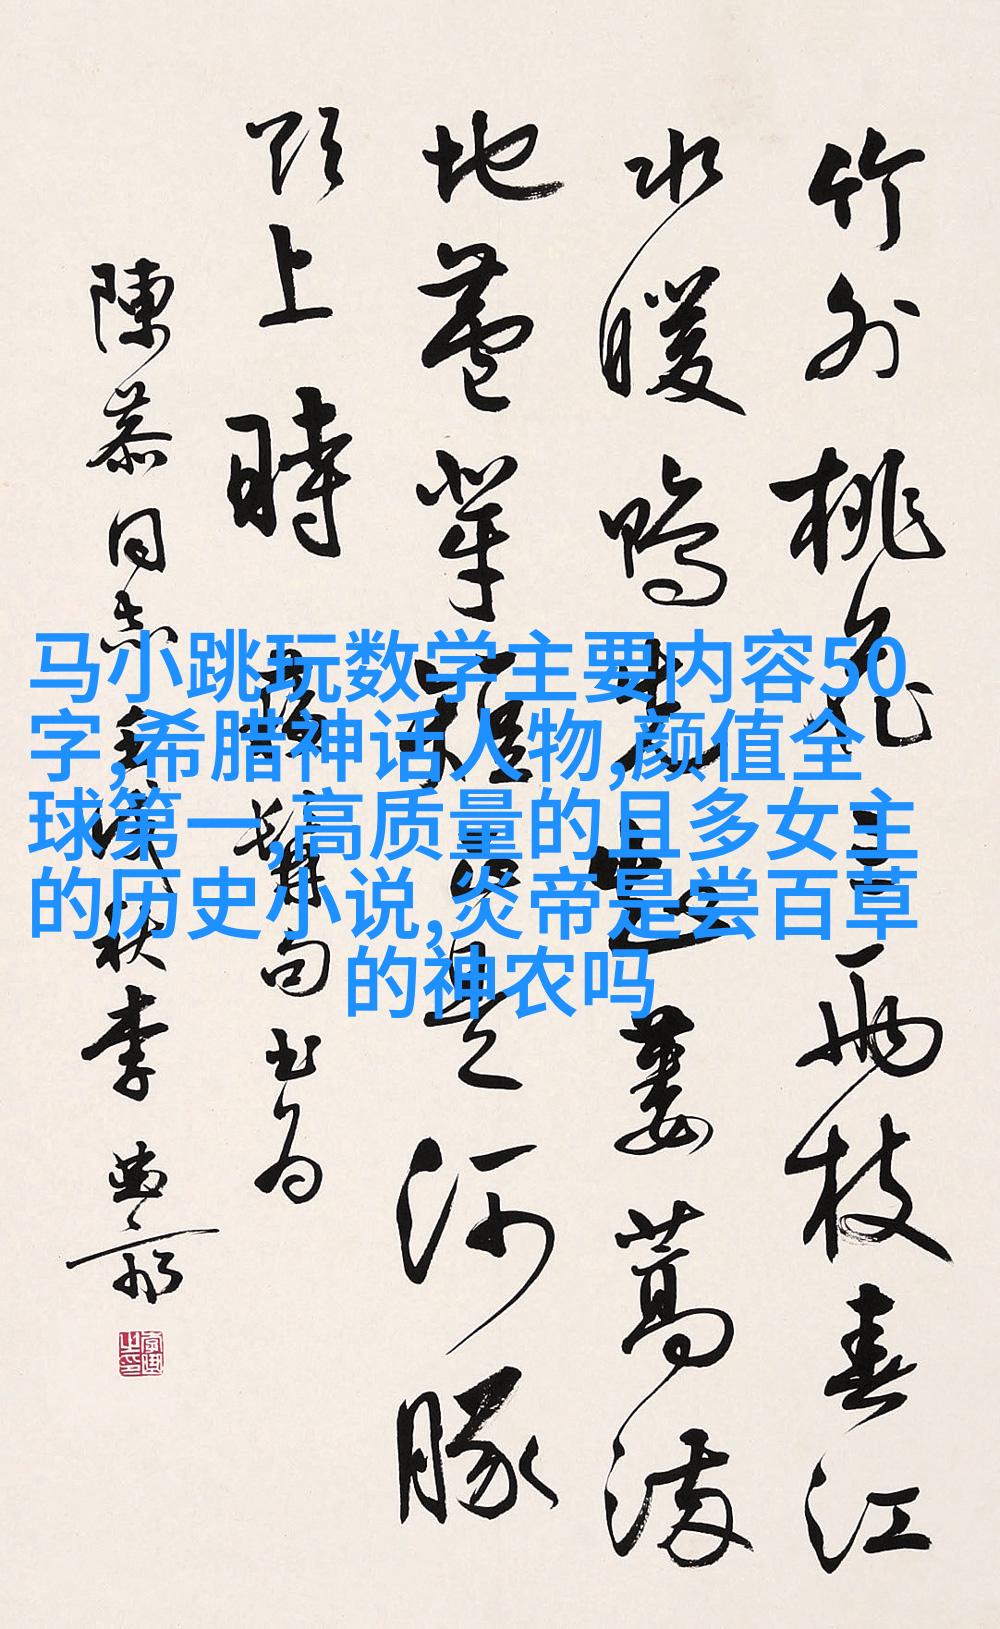 竹外桃花三兩枝春江
水暖鴨先知蔞蒿滿
地蘆芽短正是河豚
欲上時 蘇髯句书为
陳同志壬戌秋李
马小跳玩数学主要内容50
字,希腊神话人物,颜值全
球第一,高质量的且多女主
的历史小说,炎帝是尝百草
的神农吗